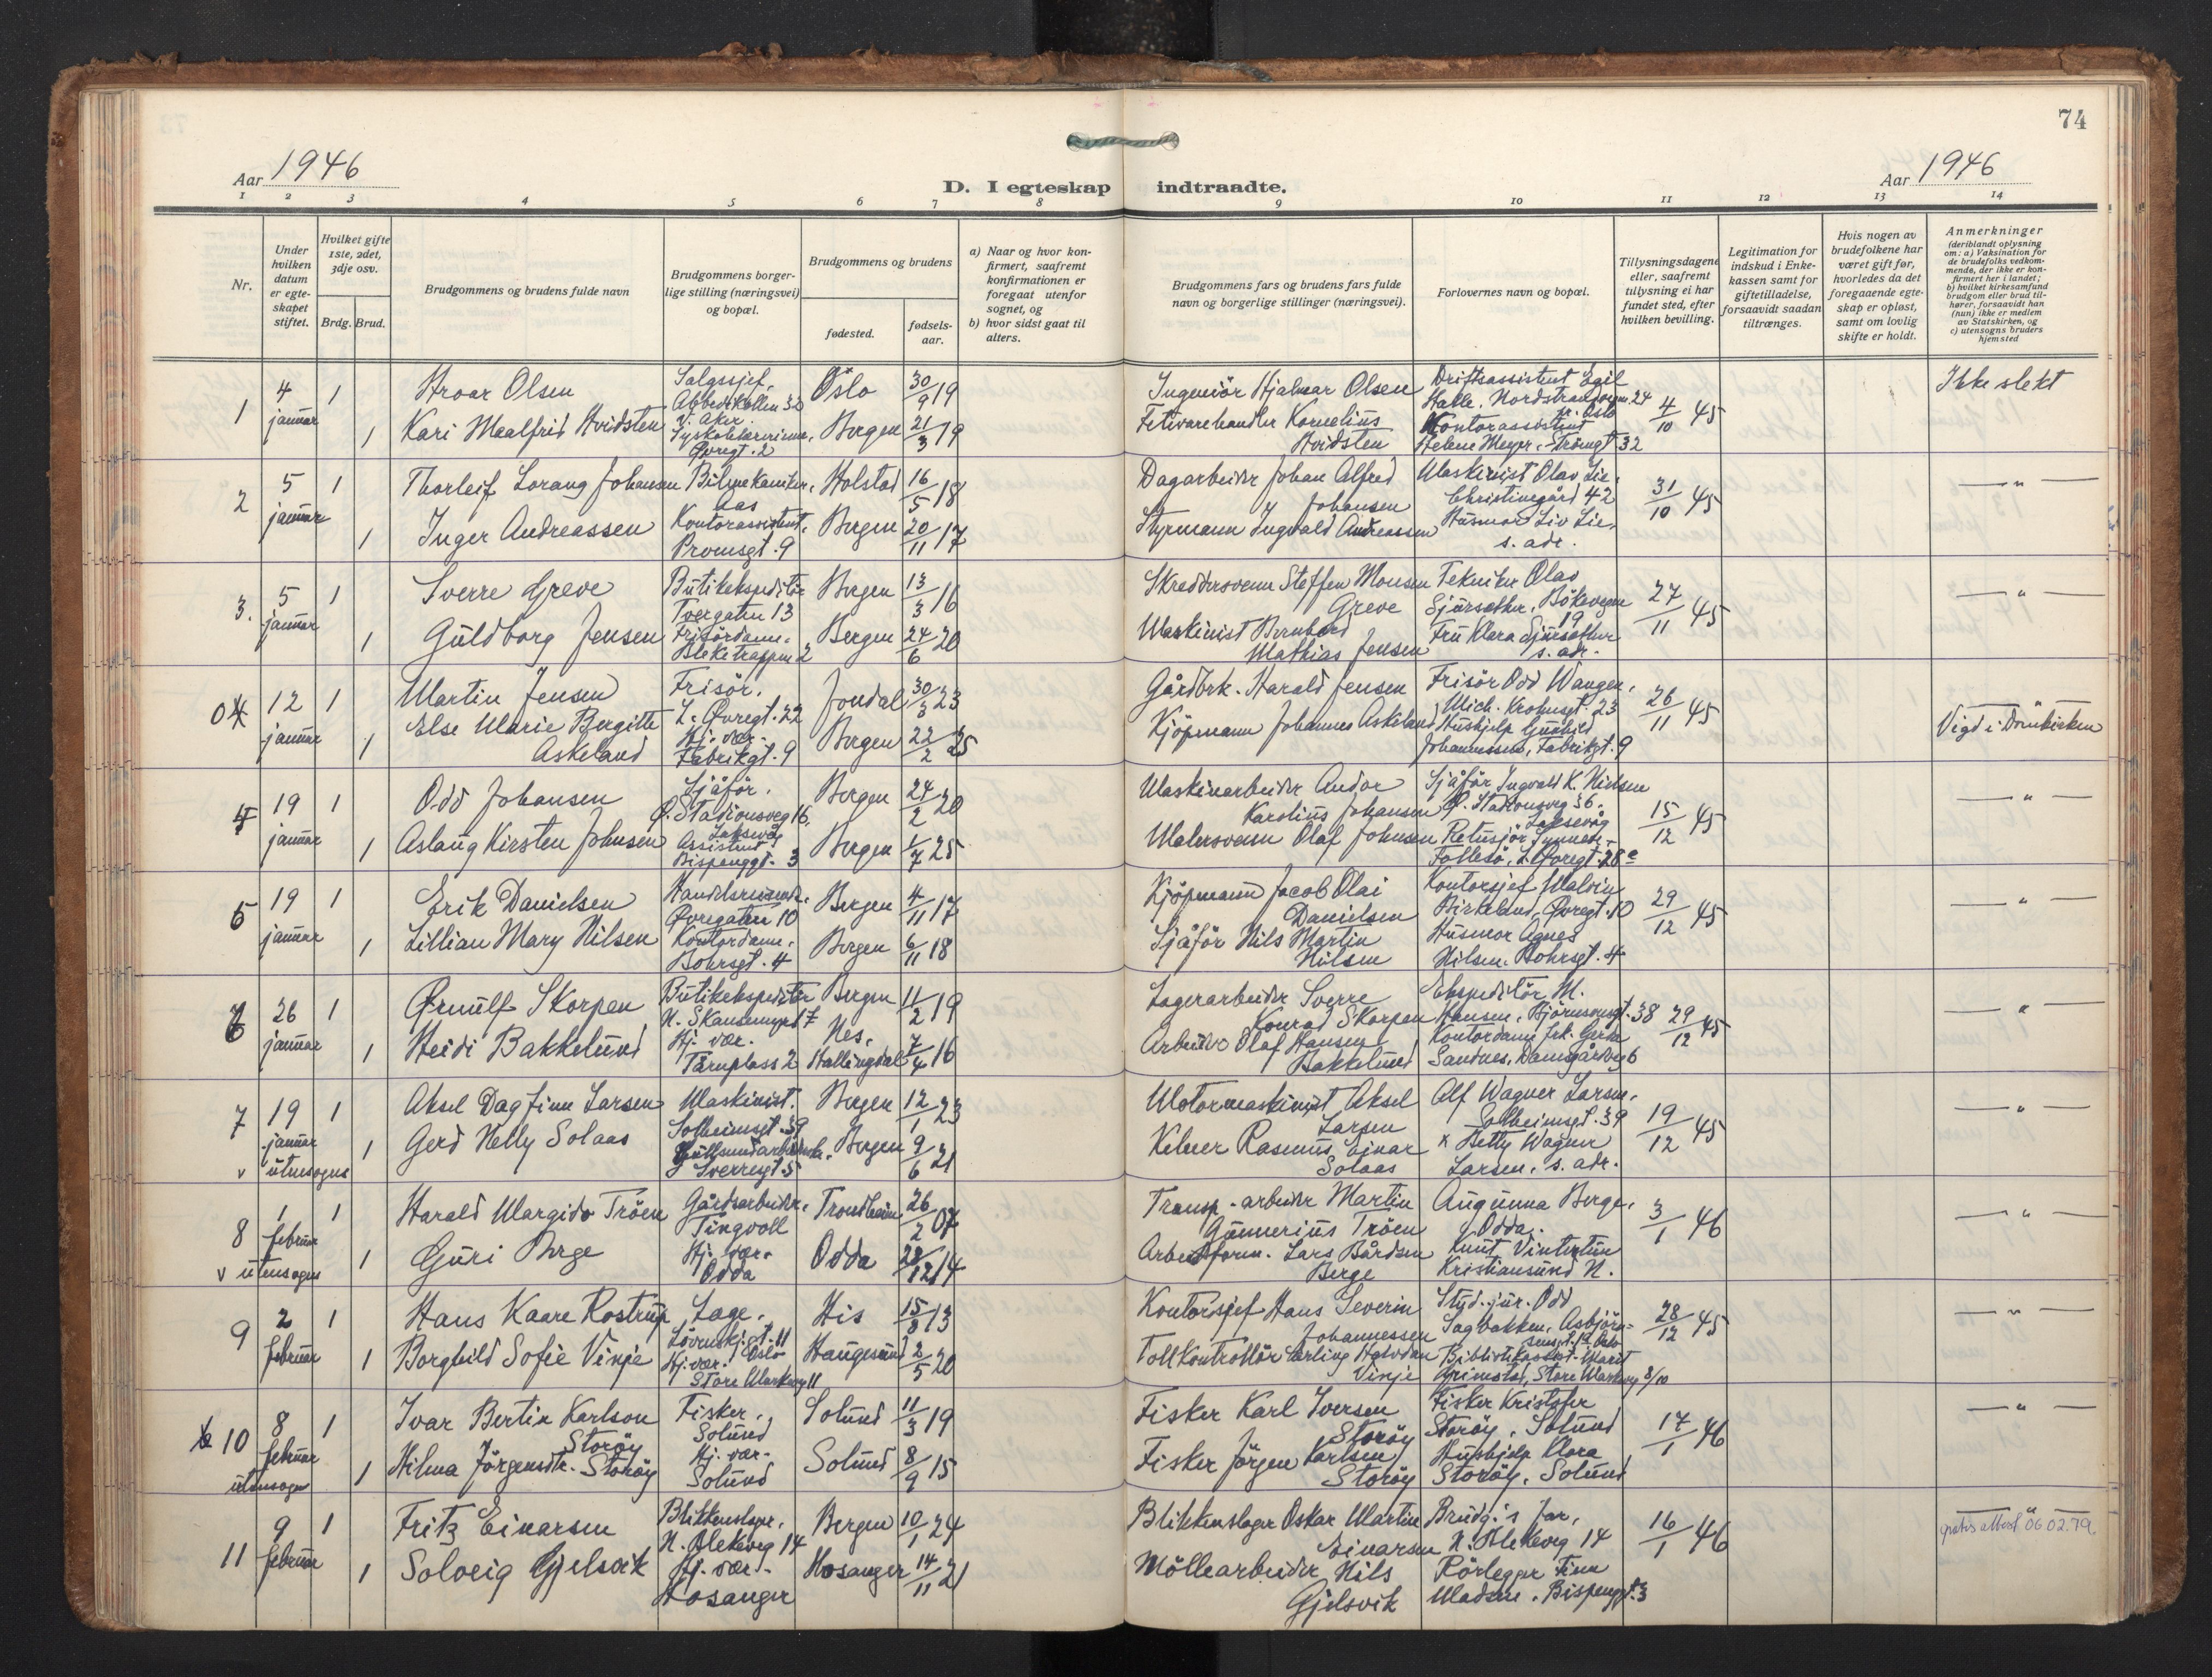 74
Aar 1946
D. I egteskap indtraadte.
Aar 1946
1 2 3 4 5 6 7 8 9 10 11 12 13 14
Nr.
Under hvilken datum er egteskapet stiftet.
Hvilket gifte 1ste, 2det, 3dje osv.
Brdg. Brud.
Brudgommens og brudens fulde navn
Brudgommens borgerlige stilling (næringsvei) og bopæl.
Brudgommens og brudens
fødested.
fødselsaar.
a) Naar og hvor konfirmert, saafremt konfirmationen er foregaat utenfor sognet, og
b) hvor sidst gaat til alters.
Brudgommens fars og brudens fars fulde navn og borgerlige stillinger (næringsvei).
Forlovernes navn og bopæl.
Tillysningsdagene eller, saafremt tillysning ei har fundet sted, efter hvilken bevilling.
Legitimation for indskud i Enkekassen samt for giftetilladelse, forsaavidt saadan tiltrænges.
Hvis nogen av brudefolkene har været gift før, hvorledes da det foregaaende egteskap er opløst, samt om lovlig skifte er holdt.
Anmerkninger
(deriblandt oplysning om: a) Vaksination for de brudefolks vedkommende, der ikke er konfirmert her i landet;
b) hvilket kirkesamfund brudgom eller brud tilhører, forsaavidt han (hun) ikke er medlem av Statskirken, og
c) utensogns bruders hjemsted
1 4 januar 1
Hroar Olsen
Salgssjef.
Abbedikollen 32
V. Aker
Oslo 30/9 19
Ingeniör Hjalmar Olsen
Driftsassistent Egil
Halle. Nordstrandvn. 24
Oslo
4/10 45
Ikke slekt
1 Kari Maalfrid Hvidsten
Øvregt. 2
Bergen 21/3 19
Fetevarehandler Kornelius
Hvidsten
Kontorassistent
Helene Meyer. Strömgt 32
2 5 januar 1
Thorleif Lorang Johansen
Bilmekaniker.
Aas
Holstad 16/5 18
Dagarbeider Johan Alfred
Johansen
Maskinist Olav Lie.
Christinegård 42
31/10 45
— " —
1 Inger Andreassen
Kontorassistent.
Promsgt. 9
Bergen 20/11 17
Styrmann Ingvald Andreassen
Husmor Liv Lie.
s. adr.
3. 5 januar 1
Sverre Greve
Butikekspeditör
Tvergaten 13
Bergen 13/3 16
Skreddersvenn Steffen Monsen
Greve
Tekniker Olav
Sjursether. Bökevegen
19
27/11 45
— " —
1 Guldborg Jensen
Frisördame.
Bleketrappen 2
Bergen 24/6 20
Maskinist Bernhard
Mathias Jensen
Fru Klara Sjursether
s. adr.
04 12 januar 1
Martin Jensen
Frisör.
L. Øvregt. 22
Jondal 30/3 23
Gårdbrk. Harald Jensen
Frisör Odd Wangen.
Mich. Krohnsgt. 23
26/11 45
Vigd i Domkirken
1 Else Marie Bergitte
Askeland
Hj. vær.
Fabrikgt. 9
Bergen 22/2 25
Kjöpmann Johannes Askeland
Hushjelp Gunhild
Johannessen, Fabrikgt. 9
4 19 januar 1
Odd Johansen
Sjåför.
Ø. Stadionsveg 16.
Laksevåg
Bergen 24/2 20
Maskinarbeider Andor
Karolius Johansen
Sjåför Ingvald K. Nielsen
Ø. Stadionsveg 36.
Laksevåg
15/12 45
— " —
1 Aslaug Kirsten Johnsen
Assistent
Bispenggt. 3
Bergen 1/7 25
Malersvenn Olaf Johnsen
Retusjör Synnöve
Follesö, L. Øvregt. 28 a
5 19 januar 1
Erik Danielsen
Handelsreisende.
Øvregaten 10
Bergen 4/11 17
Kjöpmann Jacob Olai
Danielsen
Kontorsjef Malvin
Birkeland, Øvregt. 10
29/12 45
— " —
1 Lillian Mary Nilsen
Kontordame.
Bohrsgt. 4
Bergen 6/11 18
Sjåför Nils Martin
Nilsen
Husmor Agnes
Nilsen. Bohrsgt. 4
6 26 januar 1
Ørnulf Skorpen
Butikekspeditör
N. Skansemyrd 7
Bergen 11/2 19
Lagerarbeider Sverre
Konrad Skorpen
Ekspeditör M.
Hansen, Björnsonsgt. 38
29/12 45
— " —
1 Heidi Bakkelund
Hj. vær.
Tårnplass 2
Nes.
Hallingdal 7/4 16
Olaf Hansen
Bakkelund
Kontordame
Sandnes, Damsgårdveg 6
7 19 januar 1
v utensogns
Aksel Dagfinn Larsen
Maskinist.
Solheimsgt. 39
Bergen 12/1 23
Motormaskinist Aksel
Larsen
Alf Wagner Larsen.
Solheimsgt. 39
19/12 45
— " —
1 Gerd Nelly Solaas
Sverresgt 5
Bergen 9/6 21
Kelner Rasmus Einar
Solaas
x Betty Wagner
Larsen. s. adr.
8 1 februar 1
v utensogns
Harald Margido Tröen
Gårdsarbeider.
Tingvoll
Trondheim 26/2 07
Transp.-arbeider Martin
Gunnerius Tröen
Augunna Berge.
Odda.
3/1 46
— " —
1 Guri Berge
Hj. vær.
Odda
Odda 28/12 14
Arbeidsform. Lars Bårdsen
Berge
Knut Vintertun
Kristiansund N.
9 2 februar 1
Hans Kaare Rostrup
Lage.
Lövenskj. gt. 11
Oslo
His 15/8 13
Kontorsjef Hans Severin
Johannessen
Stud. jur. Odd
Sagbakken. Asbjörnsensgt. 12 Oslo
28/12 45
— " —
1 Borghild Sofie Vinje
Hj. vær.
Store Markveg 11
Haugesund 2/5 20
Tollkontrollör Erling Halvdan
Vinje
Marit
Grimstad, Store Markveg 8/10
10 8 februar 1
utensogns
Ivar Bertin Karlson
Storöy
Fisker.
Solund
Solund 11/3 19
Fisker Karl Iversen
Storöy
Fisker Kristofer
Storöy, Solund
17/1 46
— " —
1 Hilma Jörgensdtr. Storöy
Hj. vær.
Solund
Solund 8/9 15
Fisker Jörgen Karlsen
Storöy
Hushjelp Klara
Storöy. Solund
11 9 februar 1
Fritz Einarsen
Blikkenslager.
N. Blekeveg 14
Bergen 10/1 24
Blikkenslager Oskar Martin
Einarsen
Brudg.s far,
N. Blekeveg 14
16/1 46
— " —
gratis attest 06.02.79.
1 Solveig Gjelsvik
Hj. vær.
Hosanger
Hosanger 14/11 21
Möllearbeider Nils
Gjelsvik
Rörlegger Finn
Madsen. Bispenggt. 3